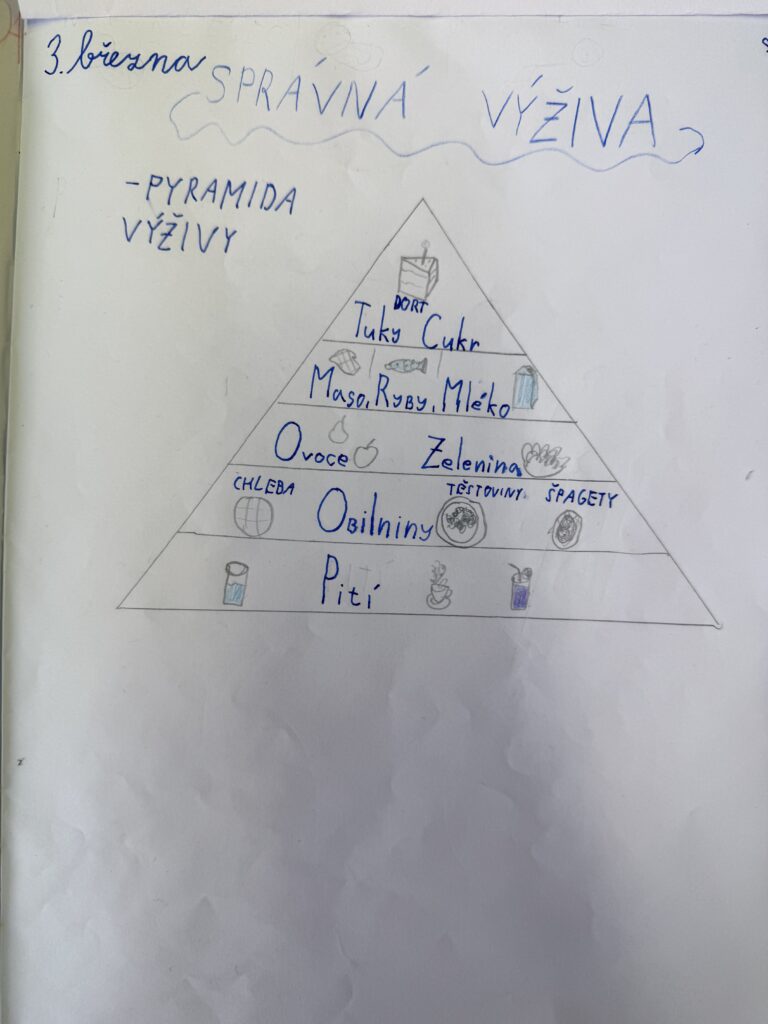 3. března
SPRÁVNÁ VÝŽIVA
-PYRAMIDA
VÝŽIVY
DORT
Tuky Cukr
Maso, Ryby, Mléko
Ovoce Zelenina
CHLEBA TĚSTOVINY ŠPAGETY
Obilniny
Pití